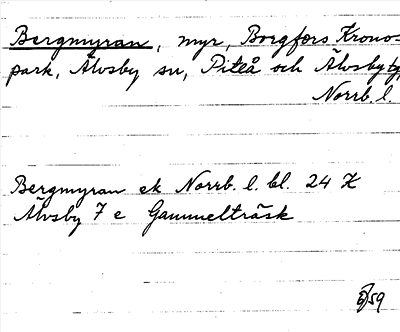 Bergmyran, myr, Borgfors Krono-
park, Älvsby sn, Piteå och Älvsbybg,
Norrb. l.
Bergmyran ek Norrb. l. bl. 24 K
Älvsby 7 e Gammelträsk
/59